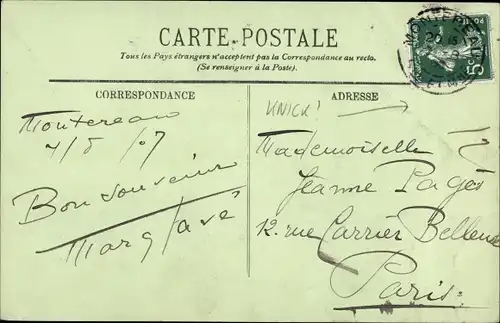 CARTE-POSTALE
Tous les Pays étrangers n'acceptent pas la Correspondance au recto.
(Se renseigner à la Poste).
CORRESPONDANCE
Montereau
Bon Souvenir
ADRESSE
KNICK!
Mademoiselle
Jeanne Pagès
12. rue Carrier Belleuse
Paris
MONTEREAU
5c